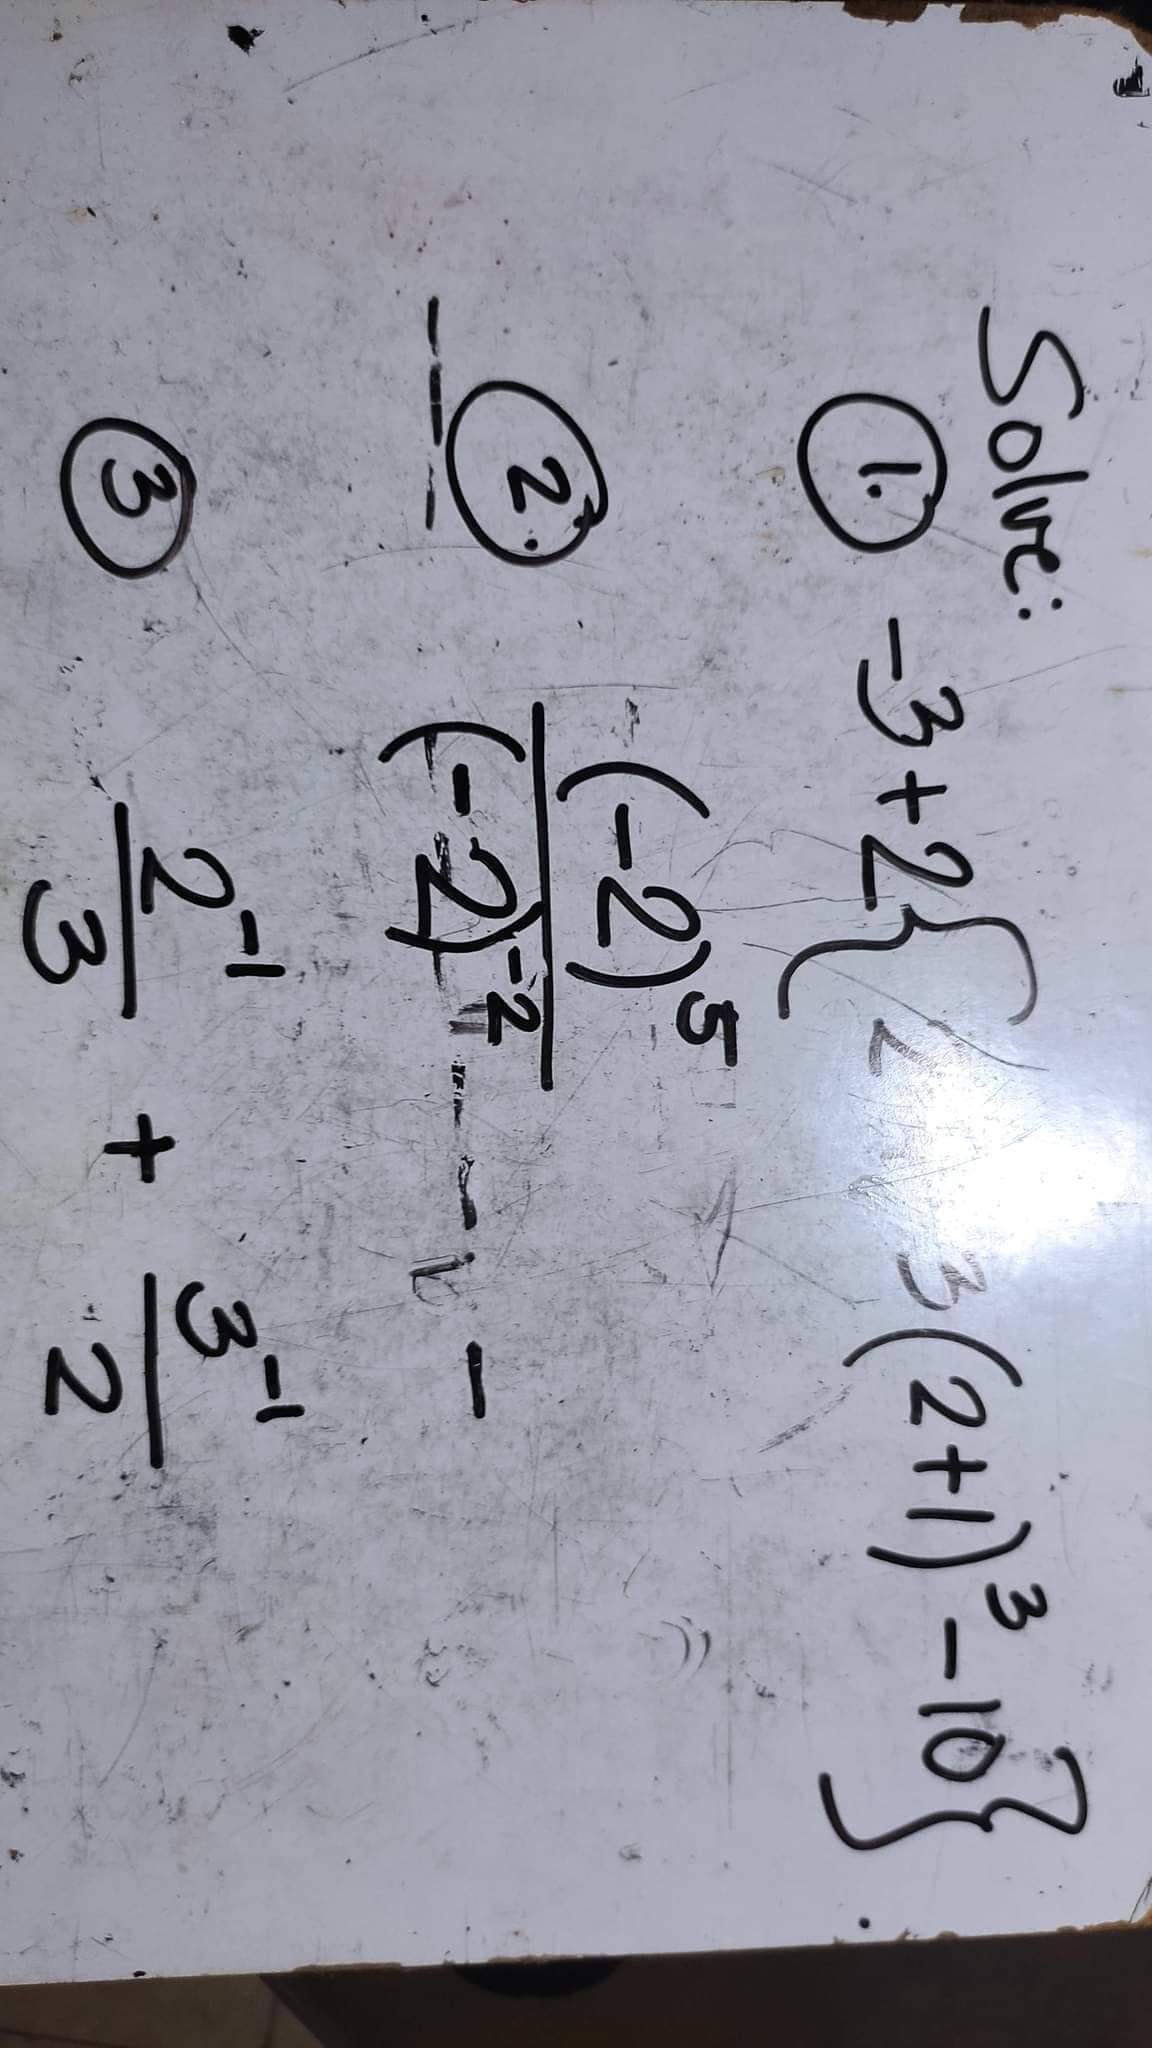 Solve:
1. -3+2{2 3(2+1)³-10}
2. (-2)⁵
(-2)⁻²
3 2⁻¹ + 3⁻¹
3 2